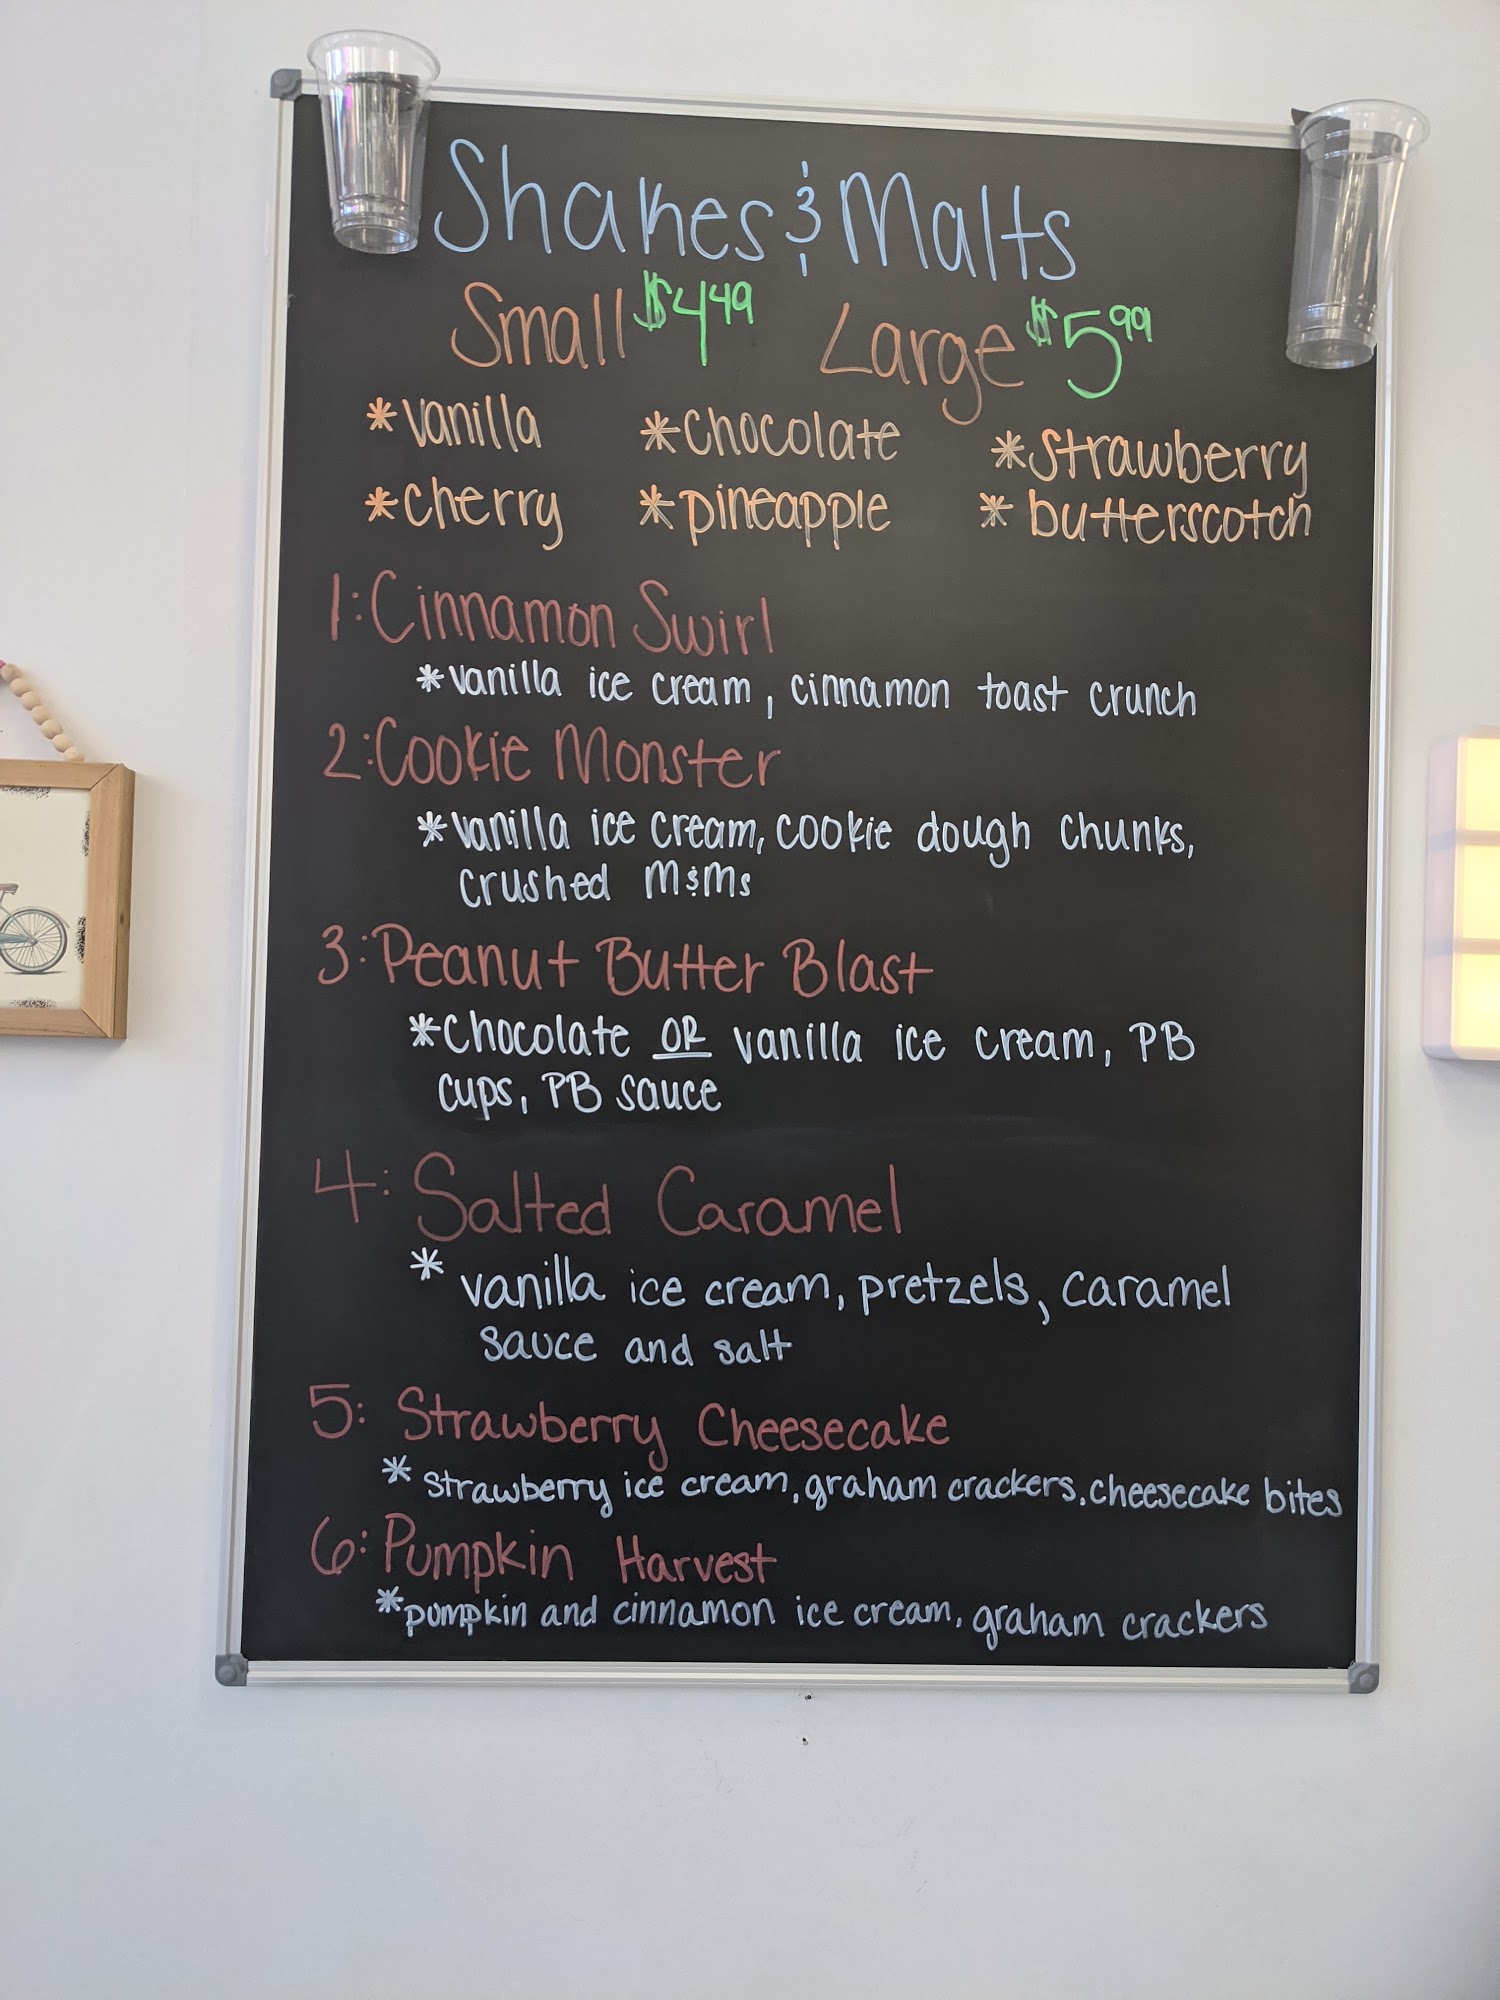 Shakes & Malts
Small $4.49 Large $5.99
*vanilla *chocolate *strawberry
*cherry *pineapple *butterscotch
1: Cinnamon Swirl
*vanilla ice cream, cinnamon toast crunch
2: Cookie Monster
*vanilla ice cream, cookie dough chunks,
crushed M&Ms
3: Peanut Butter Blast
*Chocolate OR vanilla ice cream, PB
cups, PB sauce
4: Salted Caramel
* vanilla ice cream, pretzels, caramel
sauce and salt
5: Strawberry Cheesecake
* strawberry ice cream, graham crackers, cheesecake bites
6: Pumpkin Harvest
*pumpkin and cinnamon ice cream, graham crackers